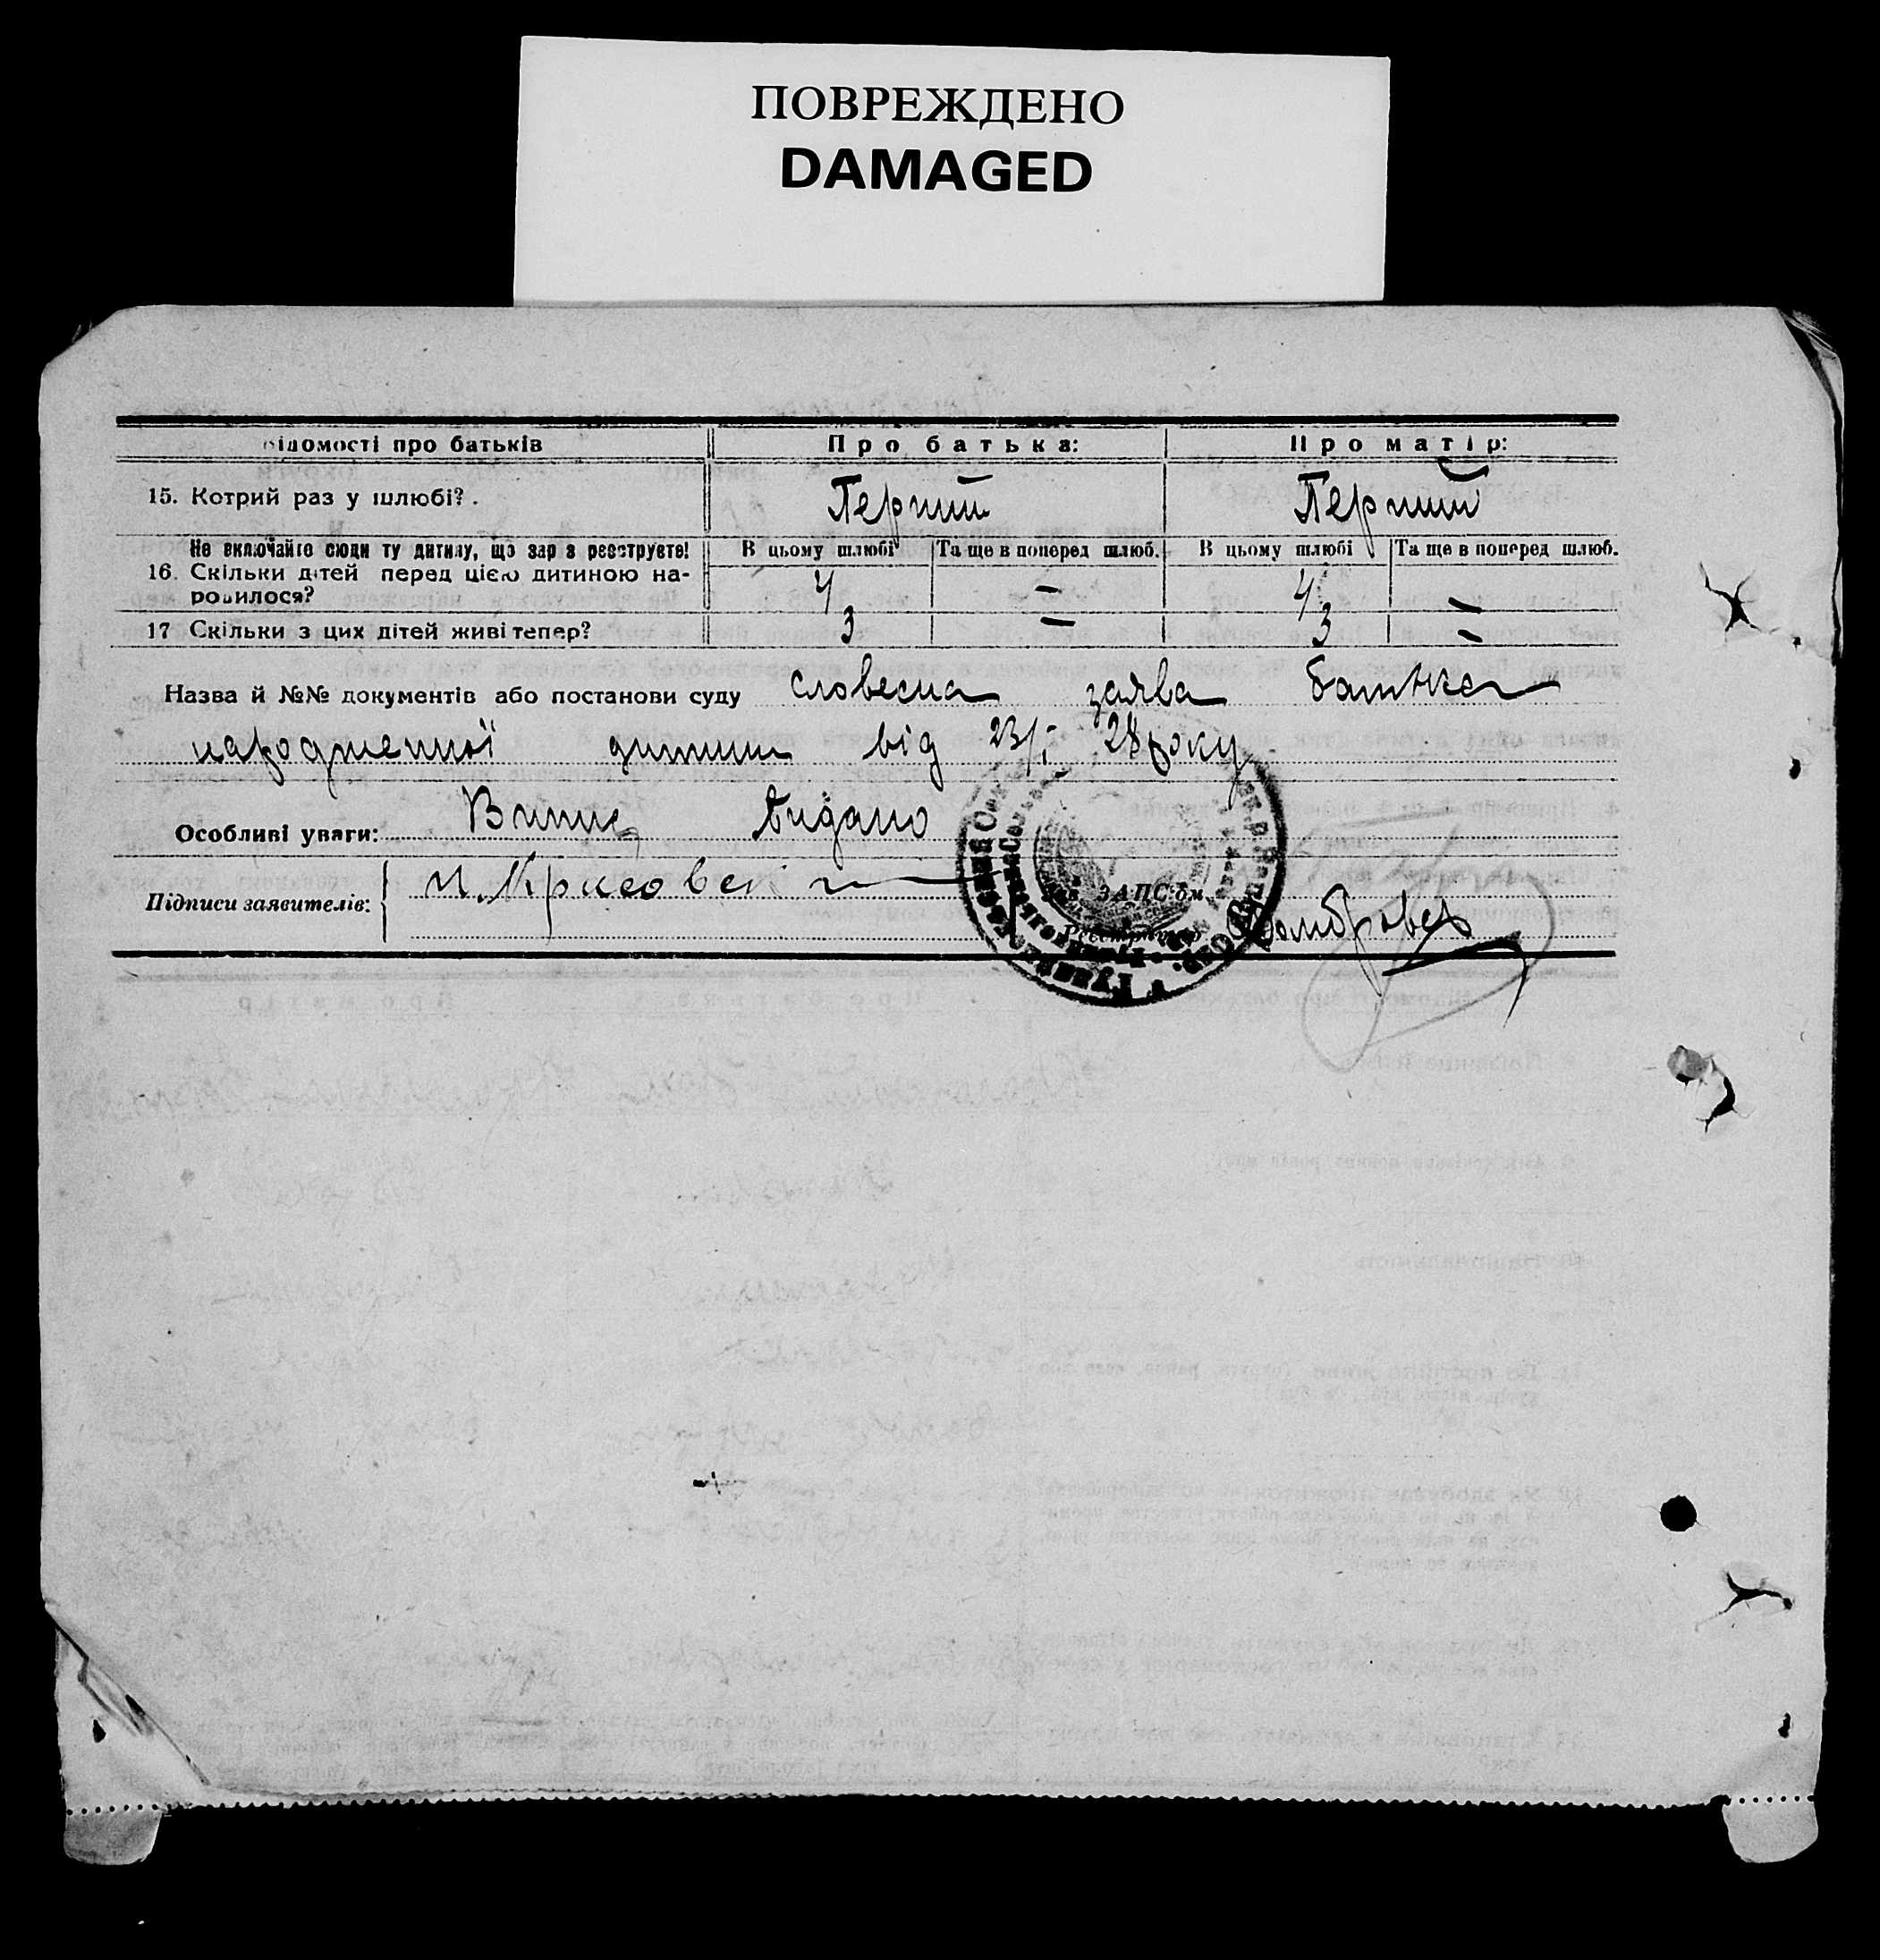 ПОВРЕЖДЕНО
DAMAGED
ідомості про батьків
Про батька:
Про матір:
15. Котрий раз у шлюбі?.
Перший
Перший
Не включайте сюди ту дитину, що зараз реєструєте!
16. Скільки дітей перед цією дитиною на-
родилося?
В цьому шлюбі
Та ще в поперед шлюб.
В цьому шлюбі
Та ще в поперед шлюб.
4
–
4
–
17 Скільки з цих дітей живі тепер?
3
–
3
–
Назва й №№ документів або постанови суду словесна заява батька
народженної дитини від 23/I 28 року
Особливі уваги: Випис видано
Підписи заявителів:
Зав. ЗАПС'ом
Реєстратор